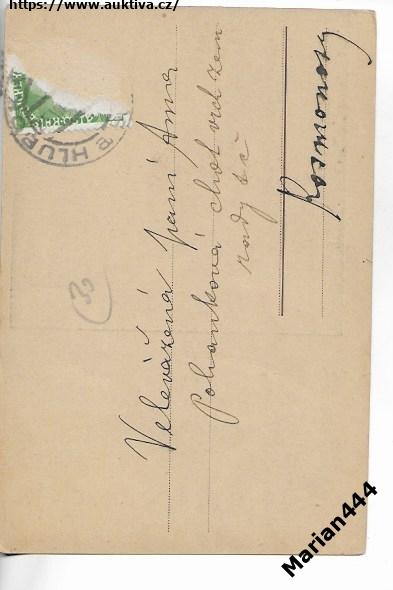 https://www.auktiva.cz/
HLUB
Velevážená paní Anna
Pohanková choť vrch zem
rady tč
Kosmonosy
30
Marian444